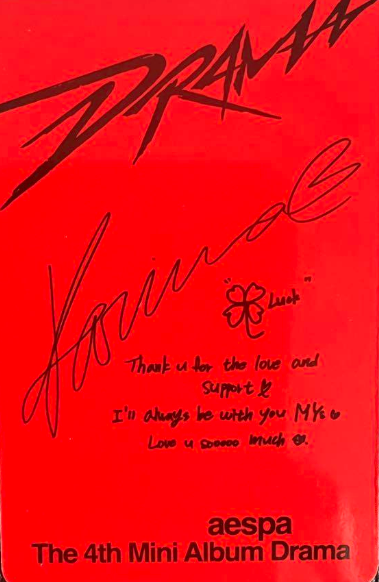 DRAMA
Karina
"🍀 Luck"
Thank u for the love and
Support ♡
I'll always be with you MYs ♥
Love u sooooo much ♥.
aespa
The 4th Mini Album Drama